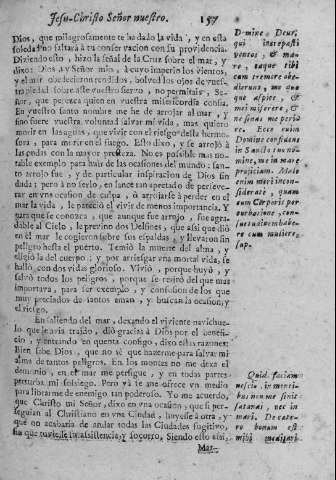 Jesu-Christo Señor nuestro. 157
Dios, que milagrosamente te ha dado la vida, y en esta
soledad no faltará tu conservacion con su providencia.
Diziendo esto, hizo la señal de la Cruz sobre el mar, y
dixo: Dios, y Señor mio, à cuyo imperio los vientos,
y el mar obedecieron rendidos, bolved los ojos de vuestra
piedad sobre este vuestro siervo, no permitais, Se-
ñor, que perezca quien en vuestra misericordia confia.
En vuestro santo nombre me he de arrojar al mar, y
sino fuere vuestra voluntad salvar mi vida, mas quiero
morir en las aguas, que vivir con el riesgo de la hermo-
sura, para morir en el fuego. Esto dixo, y se arrojó à
las ondas con la mayor presteza. No es posible mas no-
table exemplo para huir de las ocasiones del mundo: san-
to arrojo fue, y de particular inspiracion de Dios sin
duda; pero à no serlo, en lance tan apretado de perseve-
rar en vna ocasion de culpa, ò arrojarse à perder en el
mar la vida, le pareciò el vivir de menos importancia. Y
para que se conozca, que aunque fue arrojo, fue agra-
dable al Cielo, le previno dos Delfines, que assi que diò
en el mar le cogieron sobre sus espaldas, y llevaron sin
peligro hasta el puerto. Temiò la muerte del alma, y
eligiò la del cuerpo; y por arriesgar vna mortal vida, se
hallò con dos vidas glorioso. Viviò, porque huyò, y
salvò todos los peligros, porque se retirò del que mas
importava, para ser exemplo, y confusion de los que
muy preciados de santos aman, y buscan la ocasion, y
el riesgo.
En saliendo del mar, dexando el viviente navichue-
lo que le avia traìdo, diò gracias à Dios por el benefi-
cio, y entrando en quenta consigo, dixo estas razones:
Bien sabe Dios, que no sè que hazerme para salvar mi
alma de tantos peligros. En los montes no me dexa el
demonio, en el mar me persigue, y en todas partes
perturba mi sossiego. Pero ya se me ofrece vn medio
para librarme de enemigo tan poderoso. Yo me acuerdo,
que Christo mi Señor, dixo en vna ocasion, que si per-
seguian al Christiano en vna Ciudad, huyesse à otra, y
que no acabaria de andar todas las Ciudades fugitivo,
sin que tuviesse su assistencia, y socorro. Siendo esto assi,
Mar-
Domine Deus,
qui increpasti
ventos, & ma-
re, eaque tibi
cum tremore obe-
dierunt, me quo-
que aspice, &
mei miserere, &
ne sinas me peri-
re. Ecce enim
Domine confidens
in Sancto tuo nó-
mine, me in mare
projiciam. Malo
enim mori incon-
siderate, quam
cum Corporis per-
turbatione, con-
suetudinem habe-
re cum muliere,
sup.
Quid faciam
nescio, in monti-
bus non me sinit
satanas, nec in
mari. De cæte-
ro bonum est
mihi meditari